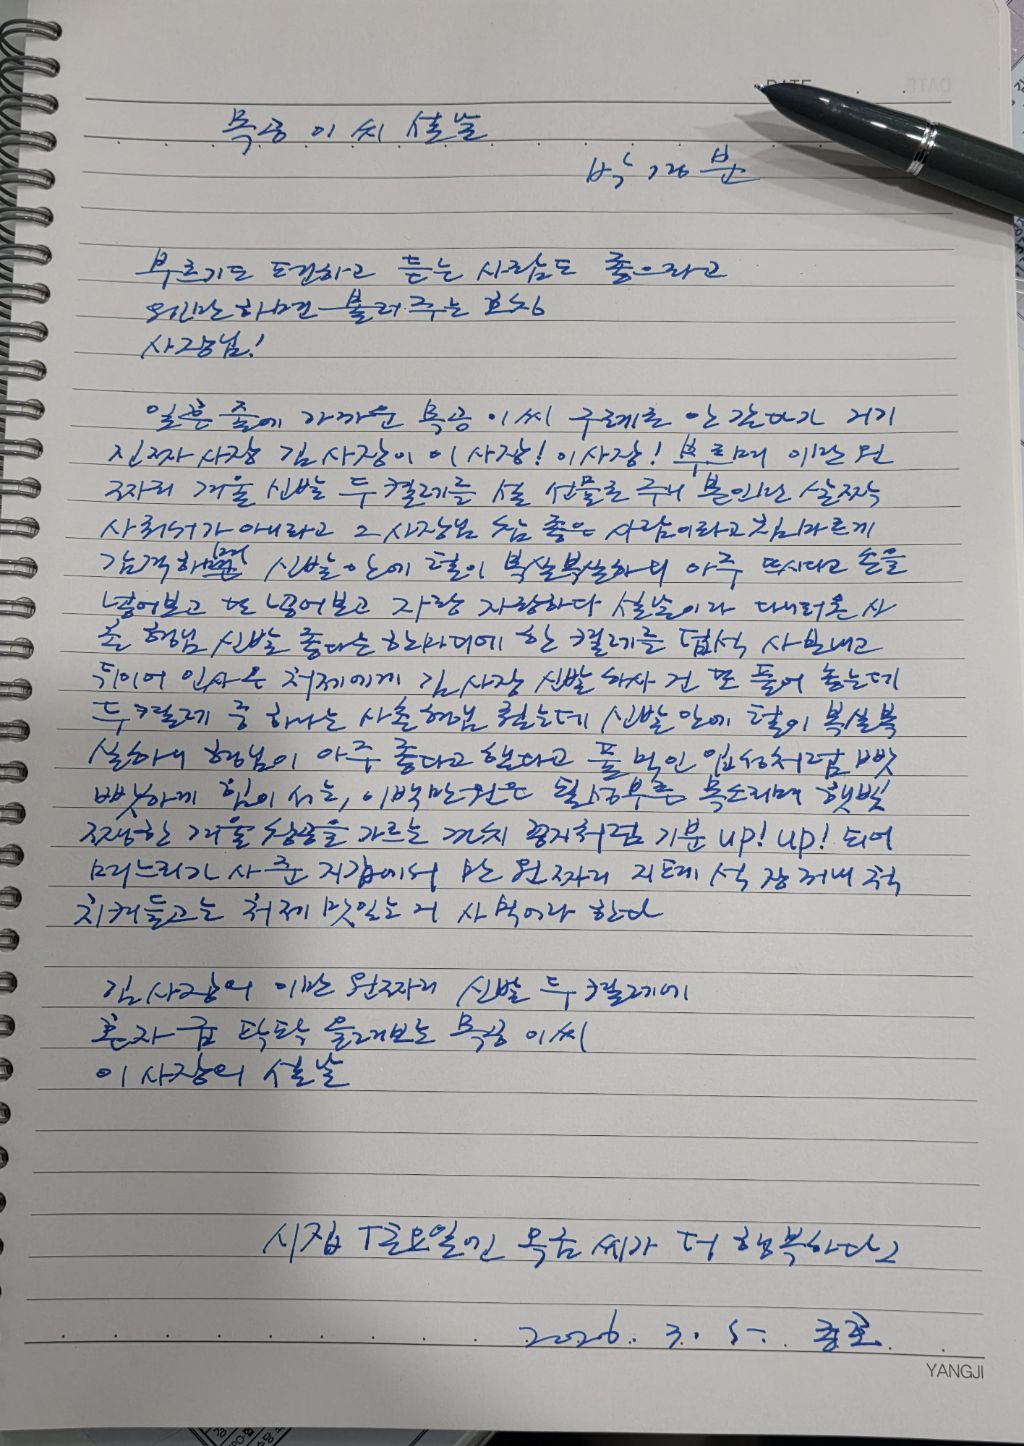 DATE
목공 이 씨 설날
박경분
부르기도 편하고 듣는 사람도 좋으라고
웬만하면 불러 주는 호칭
사장님!
일흔 줄에 가까운 목공 이 씨 구로 안 간다가 거기
진짜 사장 김 사장이 이 사장! 이 사장! 부르며 이만 원
짜리 겨울 신발 두 켤레를 설 선물로 주니 본인만 살짝
사회서가 아니라고 그 사장님 참 좋은 사람이라고 침 마르게
감격하며 신발 안에 털이 복실복실하니 아주 뜨시다고 손을
넣어보고 또 넣어보고 자랑 자랑하다 설날이라 다니러 온 사
촌 형님 신발 좋다는 한마디에 한 켤레를 덥석 사 보내고
뒤이어 인사 온 처제에게 김 사장 신발 하사 건 또 풀어 놓는데
두 켤레 중 하나는 사촌 형님 줬는데 신발 안에 털이 복실복
실하니 형님이 아주 좋다고 했다고 풀 먹인 입성처럼 빳
빳하게 힘이 서는, 이백만 원은 될성부른 목소리며 햇빛
쨍한 겨울 창공을 가르는 까치 꽁지처럼 기분 up! up! 되어
며느리가 사 준 지갑에서 만 원짜리 지폐 석 장 꺼내 척
치켜들고는 처제 맛있는 거 사 먹어라 한다
김 사장의 이만 원짜리 신발 두 켤레에
혼자 굽 탁탁 올려보는 목공 이 씨
이 사장의 설날
시집 『금요일엔 목금 씨가 더 행복하다』
2026. 3. 5.
YANGJI